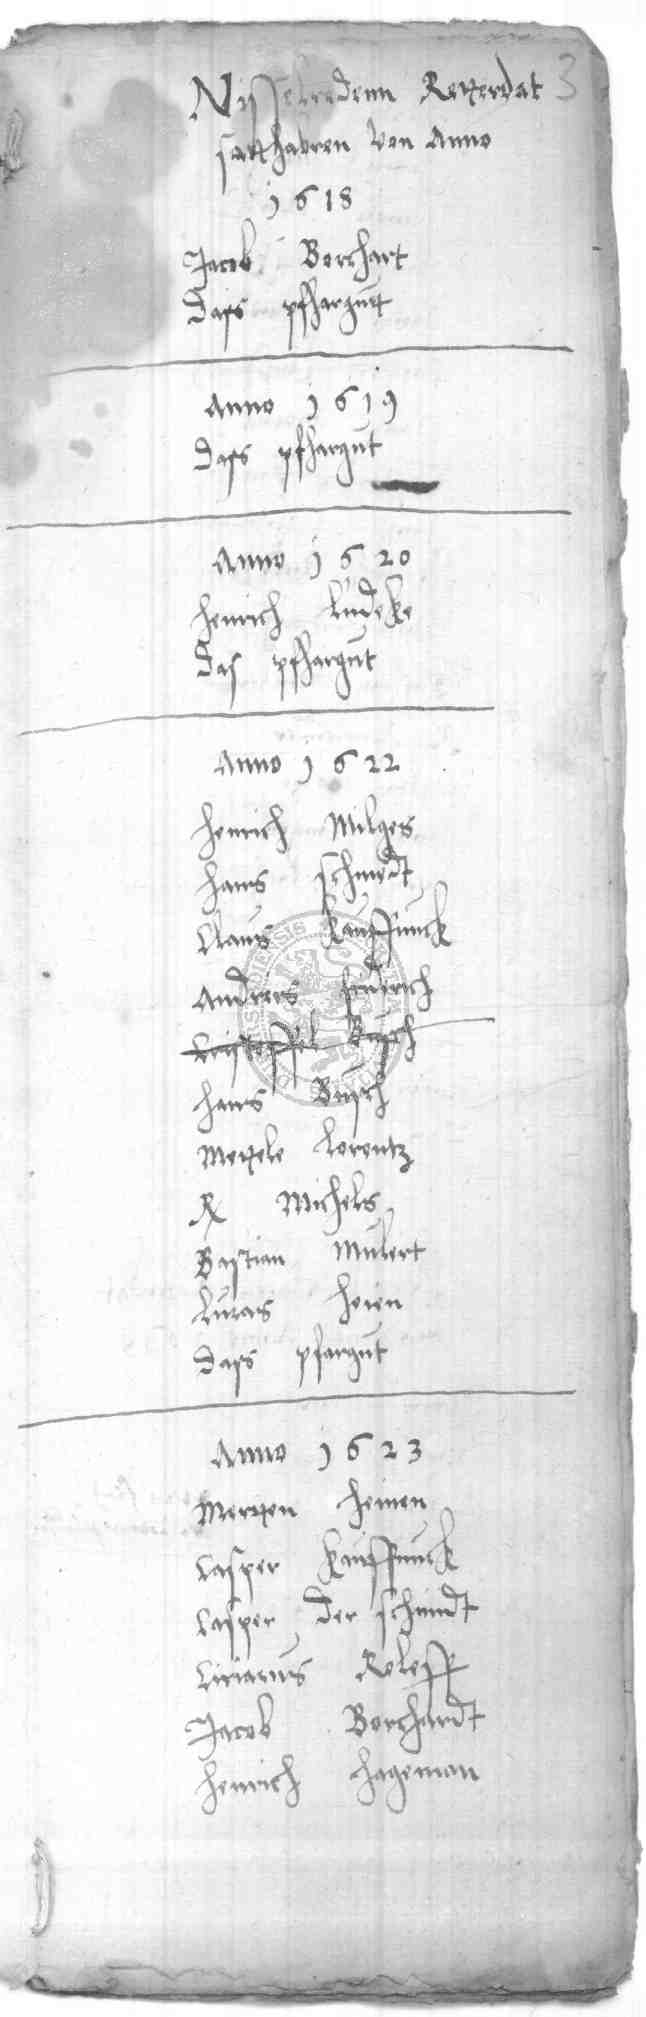 3
von Anno
1618
Jacob Borchart
Dass pfhargutt
Anno 1619
Dass pfhargut
Anno 1620
Henrich Lüdeke
Das pfhargüt
Anno 1622
Henrich Milges
Hans Schmedt
Claus Kauffunck
Andreas
Hans Büsch
Lorentz
Michels
Bastian Mülert
Lucas Heien
Dass pfargüt
Anno 1623
Merten Heinen
Casper Kauffunck
Casper der schmidt
Ciriacus Roleff
Jacob Borchardt
Henrich Hageman